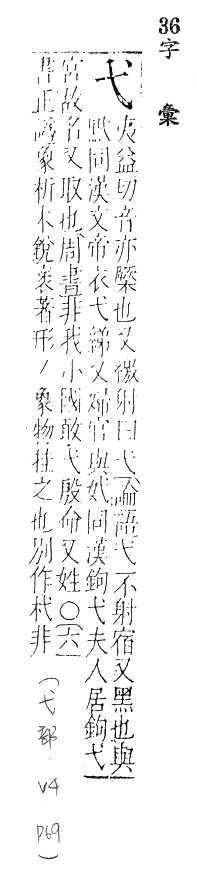 36字彙
弋 夷益切音亦檿也又繳射曰弋論語弋不射宿又黑也與
黓同漢文帝衣弋綈又婦官與妷同漢鉤弋夫人居鉤弋
宮故名又取也周書非我小國敢弋殷命又姓○六
書正譌象析木銳衺著形丿象物挂之也別作杙非
(弋部 V4 P69)